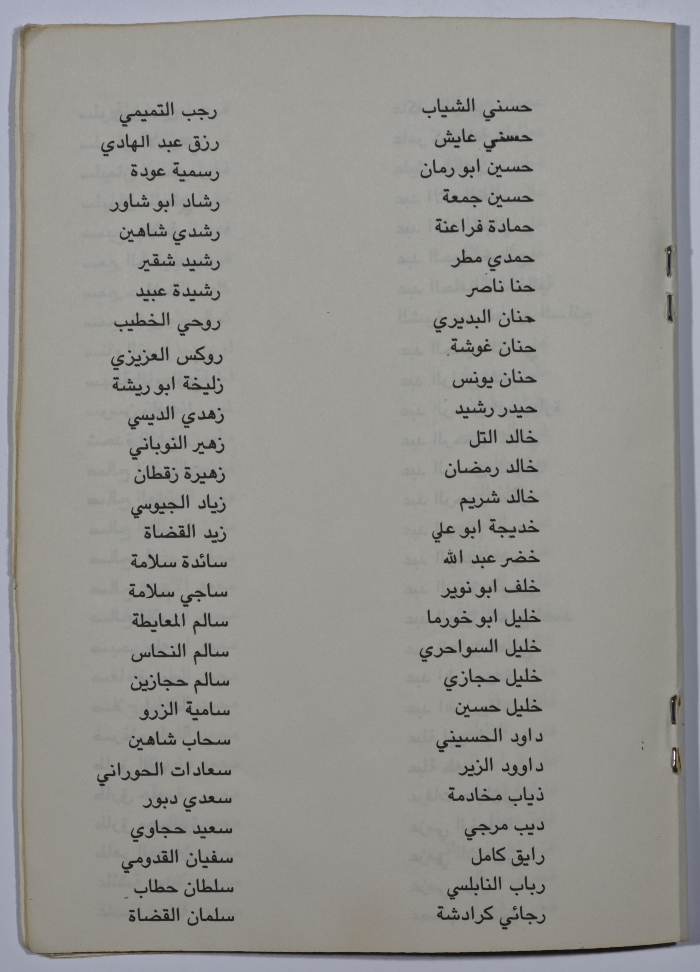 حسني الشياب
حسني عايش
حسين ابو رمان
حسين جمعة
حمادة فراعنة
حمدي مطر
حنا ناصر
حنان البديري
حنان غوشة
حنان يونس
حيدر رشيد
خالد التل
خالد رمضان
خالد شريم
خديجة ابو علي
خضر عبد الله
خلف ابو نوير
خليل ابو خورما
خليل السواحري
خليل حجازي
خليل حسين
داود الحسيني
داوود الزير
ذياب مخادمة
ديب مرجي
رايق كامل
رباب النابلسي
رجائي كرادشة
رجب التميمي
رزق عبد الهادي
رسمية عودة
رشاد ابو شاور
رشدي شاهين
رشيد شقير
رشيدة عبيد
روحي الخطيب
روكس العزيزي
زليخة ابو ريشة
زهدي الديسي
زهير النوباني
زهيرة زقطان
زياد الجيوسي
زيد القضاة
سائدة سلامة
ساجي سلامة
سالم المعايطة
سالم النحاس
سالم حجازين
سامية الزرو
سحاب شاهين
سعادات الحوراني
سعدي دبور
سعيد حجاوي
سفيان القدومي
سلطان حطاب
سلمان القضاة